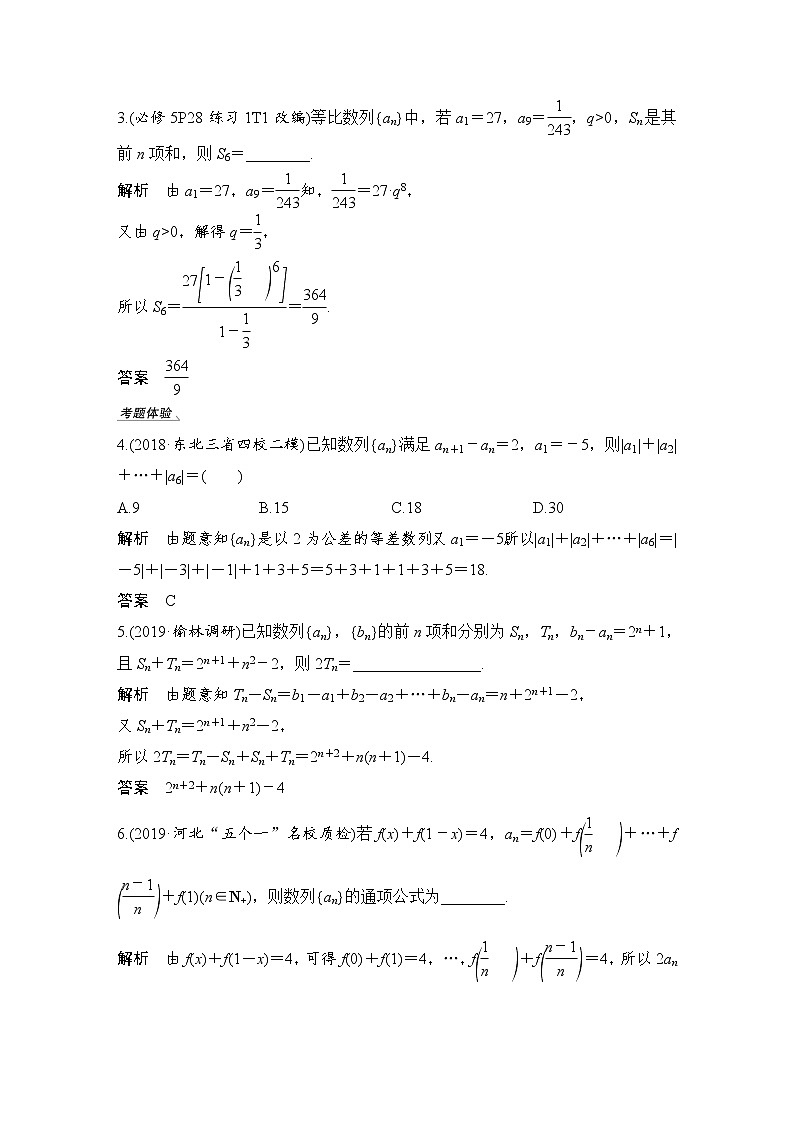 3.(必修 5P28 练习 1T1 改编)等比数列{aₙ}中，若 a₁＝27，a₉＝1/243，q>0，Sₙ是其
前 n 项和，则 S₆＝________.
解析　由 a₁＝27，a₉＝1/243知，1/243＝27·q⁸，
又由 q>0，解得 q＝1/3，
所以 S₆＝27[1－(1/3)⁶]/(1－1/3)＝364/9.
答案　364/9
考题体验
4.(2018·东北三省四校二模)已知数列{aₙ}满足 aₙ₊₁－aₙ＝2，a₁＝－5，则|a₁|＋|a₂|
＋…＋|a₆|＝(　　)
A.9　B.15　C.18　D.30
解析　由题意知{aₙ}是以 2 为公差的等差数列又 a₁＝－5所以|a₁|＋|a₂|＋…＋|a₆|＝|
－5|＋|－3|＋|－1|＋1＋3＋5＝5＋3＋1＋1＋3＋5＝18.
答案　C
5.(2019·榆林调研)已知数列{aₙ}，{bₙ}的前 n 项和分别为 Sₙ，Tₙ，bₙ－aₙ＝2ⁿ＋1，
且 Sₙ＋Tₙ＝2ⁿ⁺¹＋n²－2，则 2Tₙ＝________________.
解析　由题意知 Tₙ－Sₙ＝b₁－a₁＋b₂－a₂＋…＋bₙ－aₙ＝n＋2ⁿ⁺¹－2，
又 Sₙ＋Tₙ＝2ⁿ⁺¹＋n²－2，
所以 2Tₙ＝Tₙ－Sₙ＋Sₙ＋Tₙ＝2ⁿ⁺²＋n(n＋1)－4.
答案　2ⁿ⁺²＋n(n＋1)－4
6.(2019·河北“五个一”名校质检)若 f(x)＋f(1－x)＝4，aₙ＝f(0)＋f(1/n)＋…＋f
((n－1)/n)＋f(1)(n∈N₊)，则数列{aₙ}的通项公式为________.
解析　由 f(x)＋f(1－x)＝4，可得 f(0)＋f(1)＝4，…，f(1/n)＋f((n－1)/n)＝4，所以 2aₙ